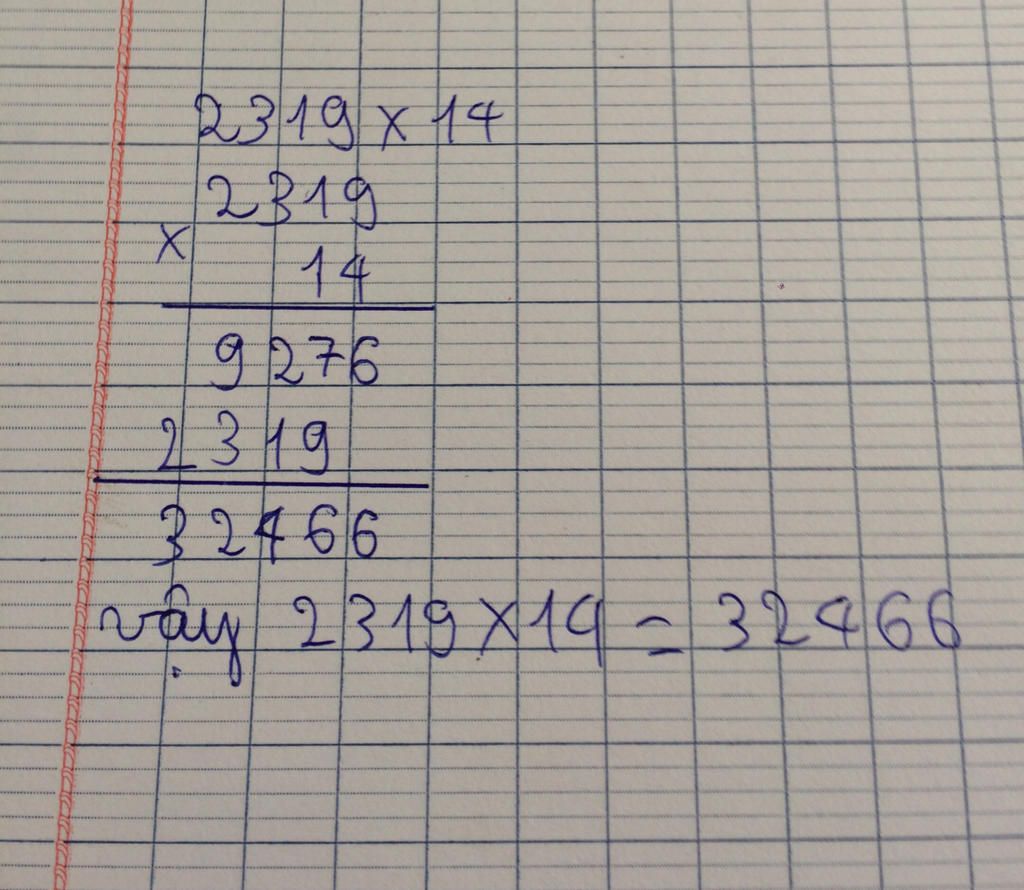 2319 x 14
2319
x
14
9276
2319
32466
vậy 2319 x 14 = 32466